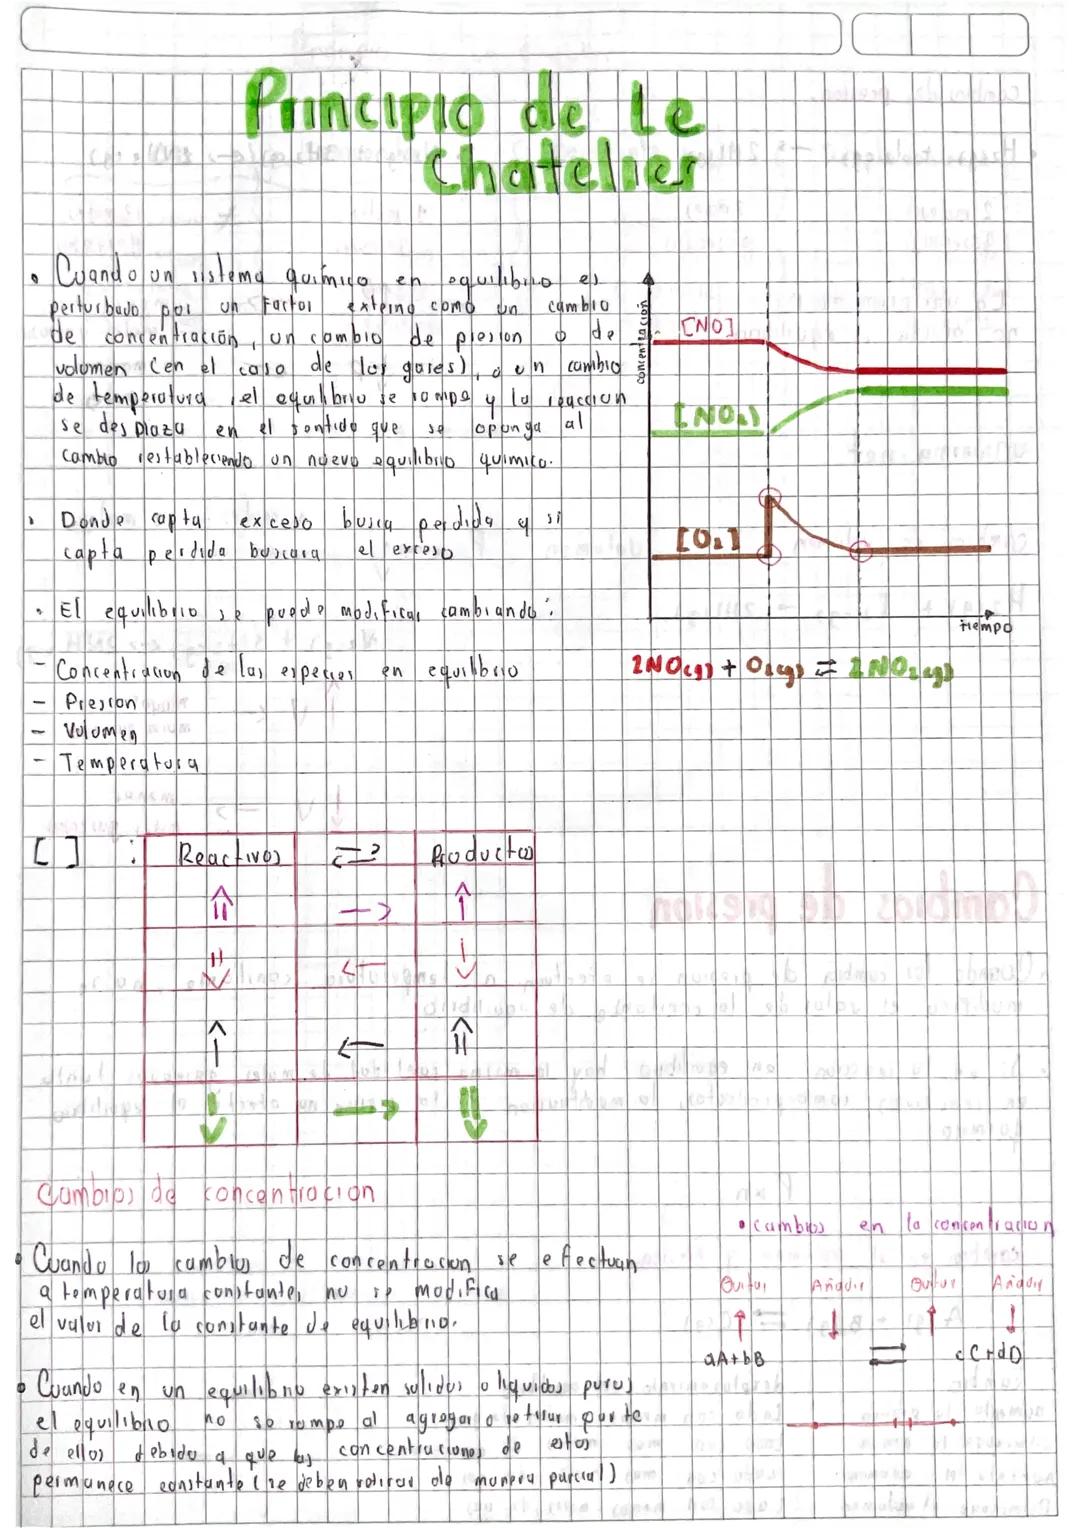 Principio de Le
Chatelier
• Cuando un sistema quimico en equilibrio es
perturbado por un Factor externo como un cambio
de concentración, un cambio de presion o de
volumen (en el caso de los gases), o un cambio
de temperatura, el equilibrio se rompe y la reaccion
se desplaza en el sentido que se oponga al
cambio restableciendo un nuevo equilibrio quimico.
• Donde capta exceso busca perdida y si
capta perdida buscara el exceso
• El equilibrio se puede modificar cambiando:
- Concentracion de las especies en equilibrio
- Presion
- Volumen
- Temperatura
concentración
[NO]
[NO₂]
[O₂]
tiempo
2NO(g) + O₂(g) ⇄ 2NO₂(g)
[ ] : Reactivos ⇄ Productos
⇑ → ↑
⇓ ← ↓
↑ ← ⇑
↓ → ⇓
Cambios de concentracion
• Cuando los cambios de concentracion se efectuan
a temperatura constante, no se modifica
el valor de la constante de equilibrio.
• Cuando en un equilibrio existen solidos o liquidos puros
el equilibrio no se rompe al agregar o retirar parte
de ellos debido a que las concentraciones de estos
permanece constante (se deben retirar de manera parcial)
• cambios en la concentracion
Quitar Añadir Quitar Añadir
↑ ↓ ↑ ↓
aA+bB ⇄ cC+dD